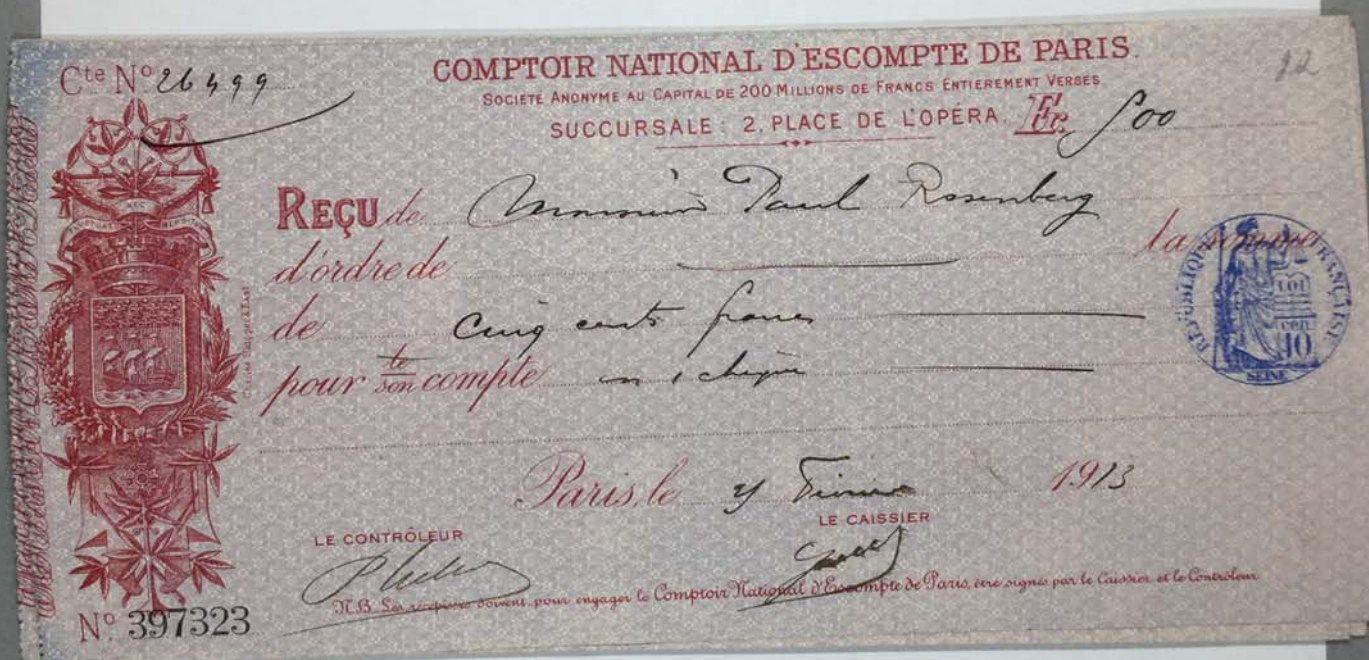 Cte No 26499
COMPTOIR NATIONAL D'ESCOMPTE DE PARIS.
12
SOCIÉTÉ ANONYME AU CAPITAL DE 200 MILLIONS DE FRANCS ENTIÈREMENT VERSÉS
SUCCURSALE: 2, PLACE DE L'OPÉRA. Fr. 500
REÇU de Monsieur Paul Rosenberg
d'ordre de la somme
de Cinq cents francs
pour le/son compte en 1 chèque
FLUCTUAT NEC MERGITUR
RÉPUBLIQUE FRANÇAISE
LOI
10
SEINE
Paris, le Février 1913
LE CONTRÔLEUR
LE CAISSIER
N.B. Les récépissés doivent, pour engager le Comptoir National d'Escompte de Paris, être signés par le Caissier et le Contrôleur
No 397323